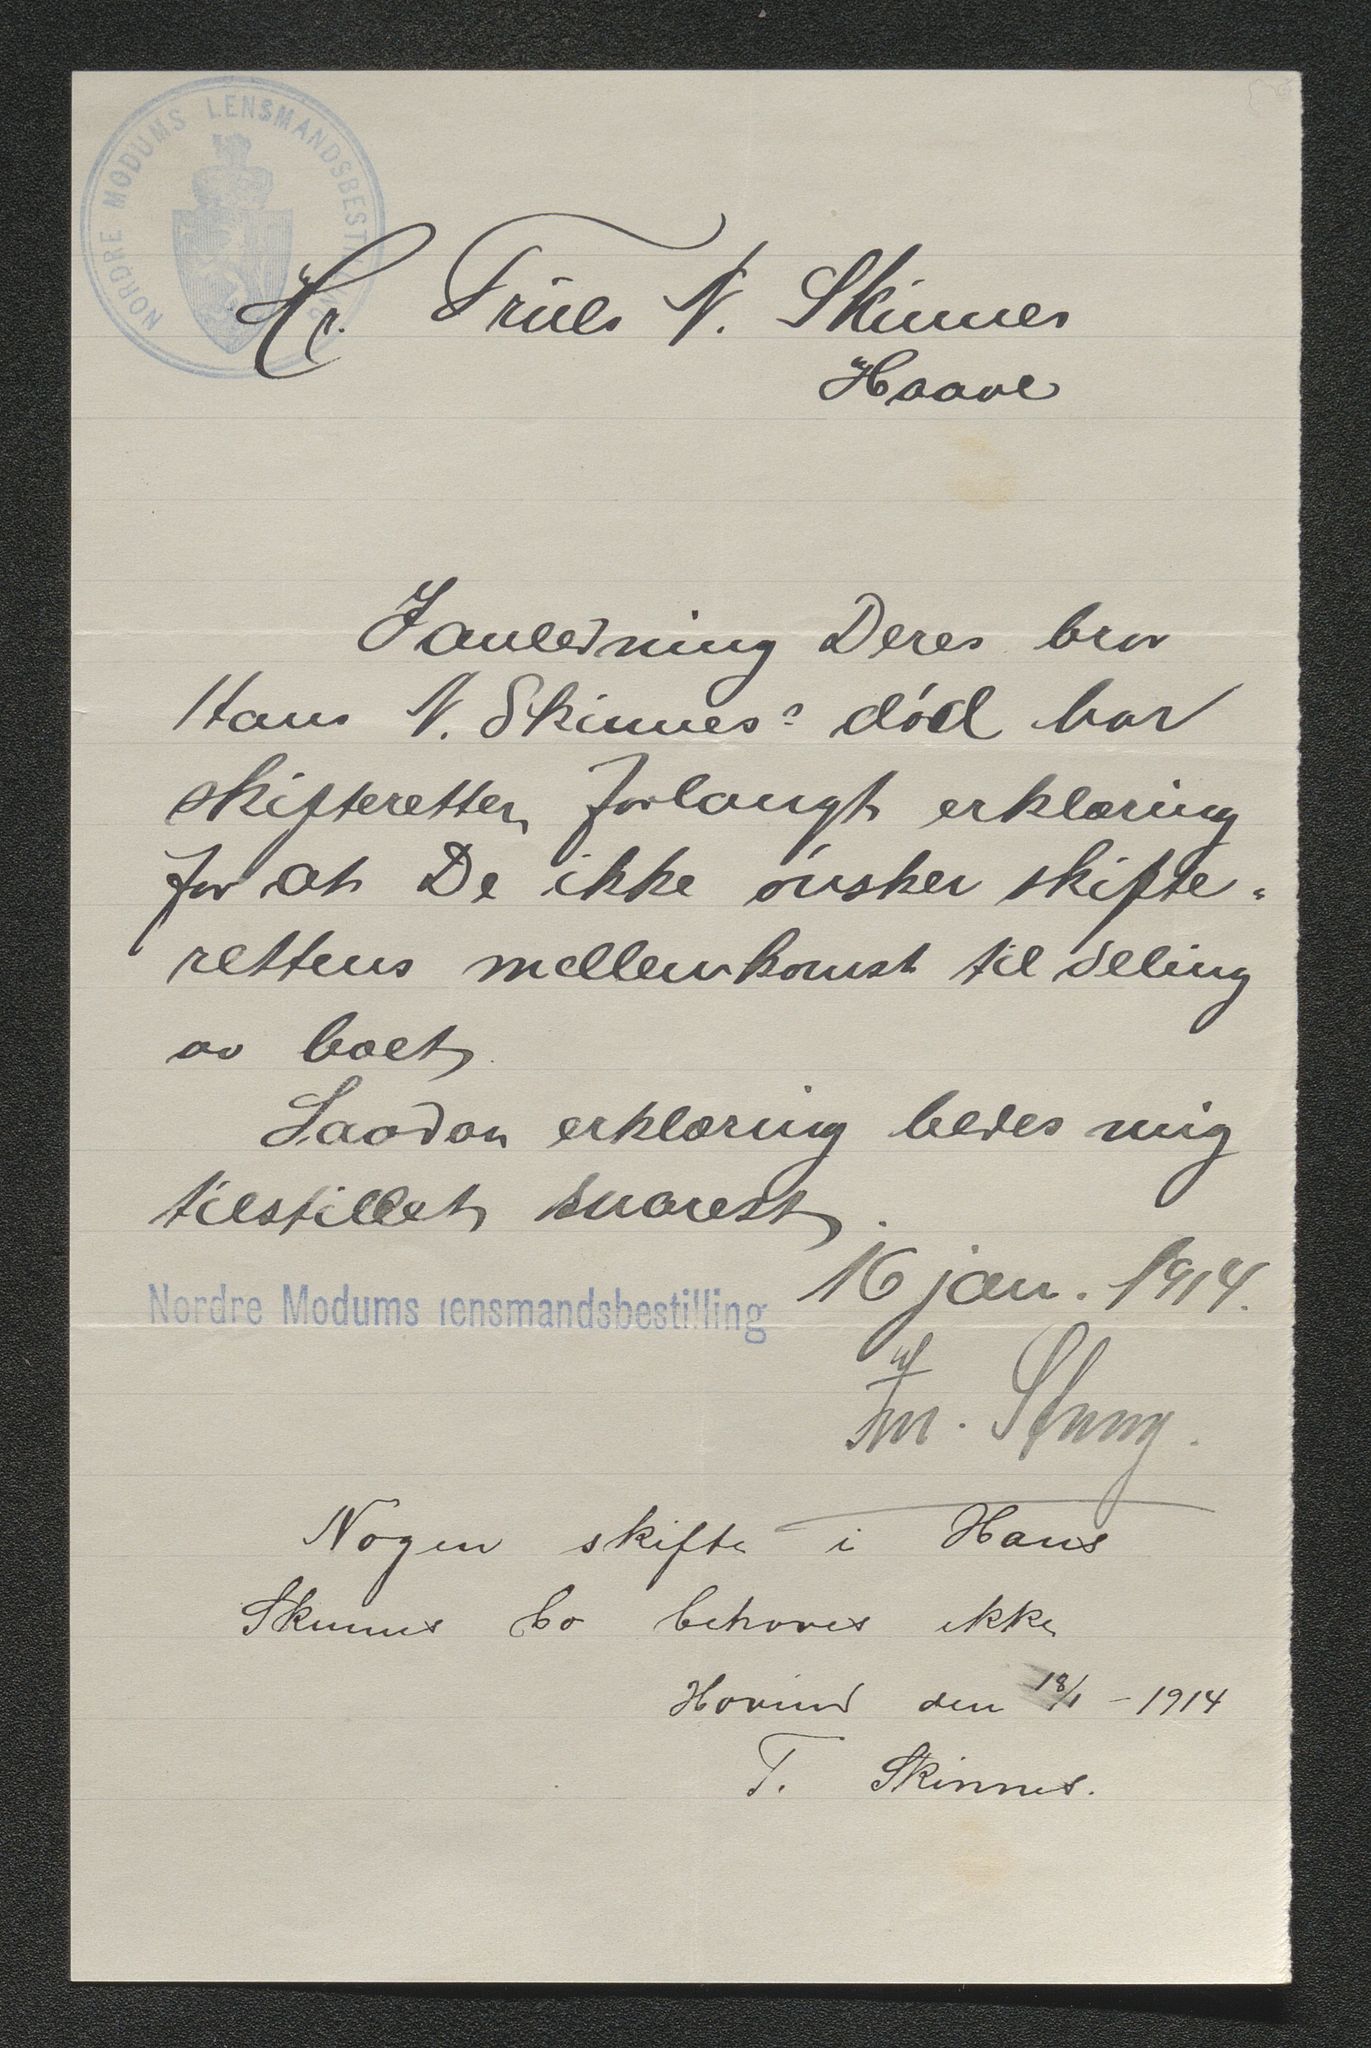 NORDRE MODUMS LENSMANDSBESTILLING
Hr. Truls N. Skinnes
Haave
I anledning Deres bror
Hans N. Skinnes' død har
skifteretten forlangt erklæring
for at De ikke ønsker skifte-
rettens mellemkomst til deling
av boet.
Saadan erklæring bedes mig
tilstillet snarest.
16 jan. 1914.
Nordre Modums lensmandsbestilling
Nogen skifte i Hans
Skinnes bo behøves ikke
Hovind den 18/1 - 1914
T. Skinnes.